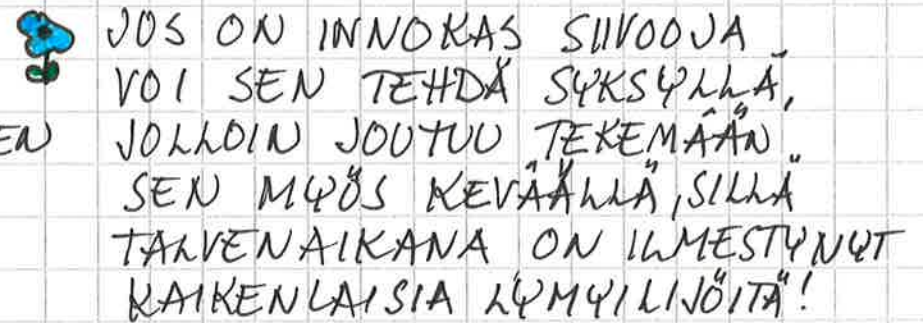 JOS ON INNOKAS SIIVOOJA
VOI SEN TEHDÄ SYKSYLLÄ,
EN JOLLOIN JOUTUU TEKEMÄÄN
SEN MYÖS KEVÄÄLLÄ, SILLÄ
TALVEN AIKANA ON ILMESTYNYT
KAIKENLAISIA LYMYILIJÖITÄ!